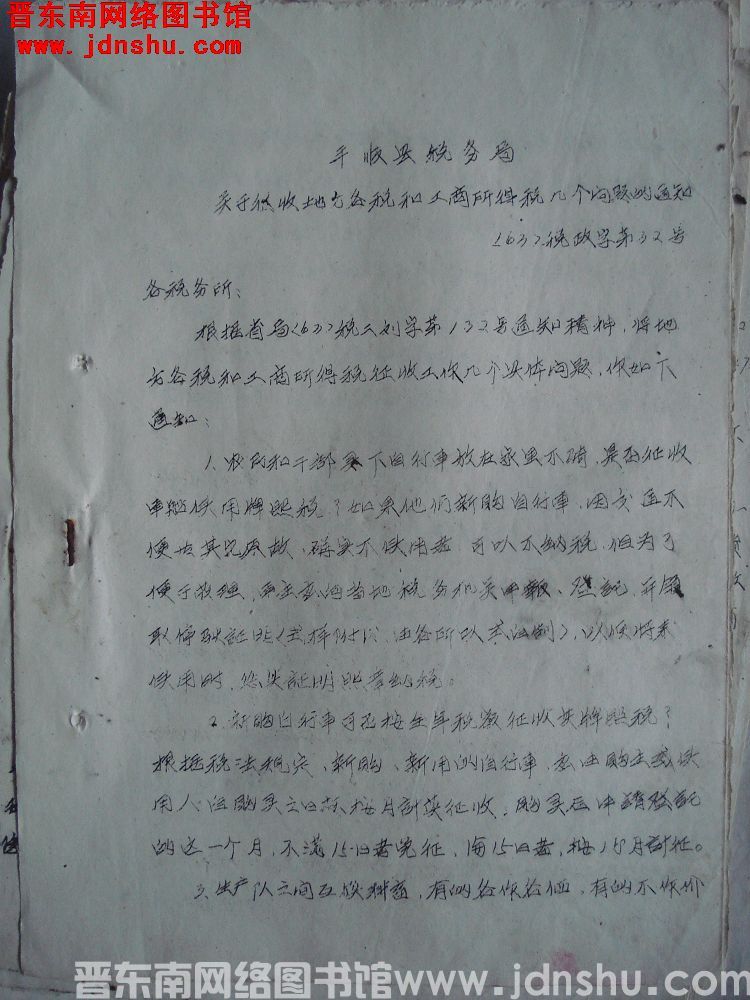 晋东南网络图书馆
www.jdnshu.com
平顺县税务局
关于征收地方各税和工商所得税几个问题的通知
(63)税政字第32号
各税务所:
根据省局(63)税三刘字第132号通知精神,将地
方各税和工商所得税征收工作几个具体问题,作如下
通知:
1、农民和干部买下自行车放在家里不骑,是否征收
车船使用牌照税?如果他们新购自行车,因交通不
便或其它原故,确实不使用者,可以不纳税,但为了
便于管理,车主应向当地税务机关申报、登记,并领
取停驶証明(式样附后,由各所以式油制),以便将来
使用时,凭其証明照章纳税。
2、新购自行车可否按全年税额征收其牌照税?
根据税法规定,新购、新用的自行车,应由购主或使
用人,从购买之日起按月計算征收,购买后申请登記
的这一个月,不满15日者免征,满15日者,按1个月計征。
3、生产队之间互换牲畜,有的各作各价,有的不作价
晋东南网络图书馆www.jdnshu.com